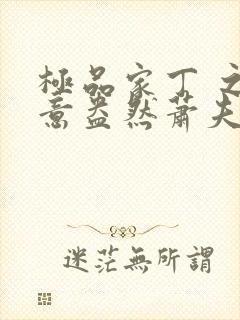 極品家丁之
意盎然蕭夫
迷茫無所謂